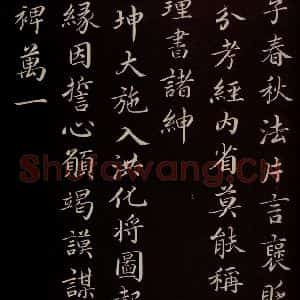 子春秋法片言襃貶
分考經内省莫能稱
理書諸紳
坤大施入洪化将圖
縁因誓心願竭謨謀
裨萬一
Shufawang.Cn